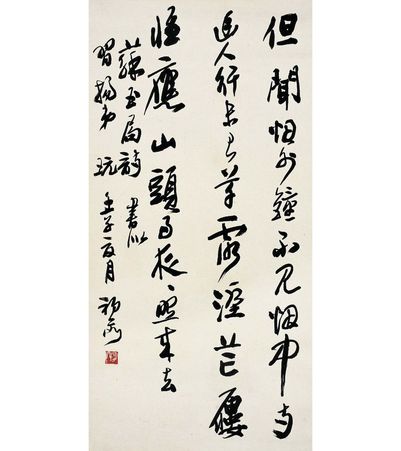 但聞烟外鐘不見烟中寺
幽人行未已草露溼芒屨
惟應山頭月夜夜照來去
蘇玉局詩 書似
弟 玩 壬子 月